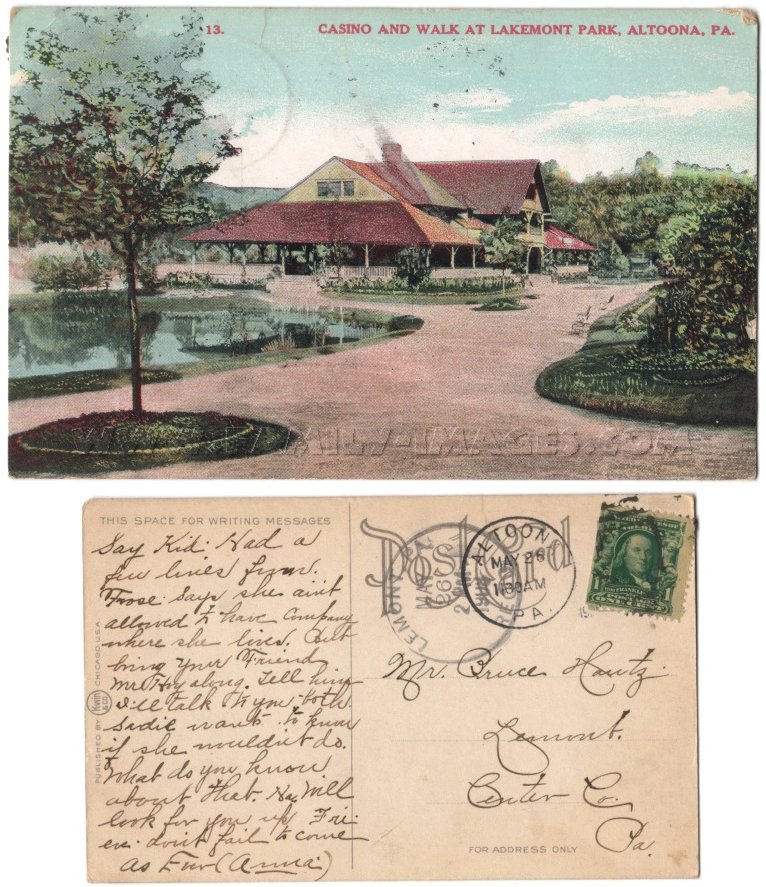 13.
CASINO AND WALK AT LAKEMONT PARK, ALTOONA, PA.
THIS SPACE FOR WRITING MESSAGES
Say Kid: Had a
few lines from.
Trose. Says she aint
allowed to have Company
where she lives. But
bring your Friend
Mr. Hoy along. Tell him
I'll talk to you both.
Sadie wants to know
if she wouldn't do.
What do you know
about that. Ha, Will
look for you up Fri-
ev. don't fail to come
As Ever (Anna.)
PUBLISHED BY KWIN & CO CHICAGO, U.S.A.
Post Card
LEMONT
MAY
26
ALTOONA
MAY 26
1130AM
PA.
1
FRANKLIN
1
Mr. Bruce Hautz.
Lemont.
Center Co.
Pa.
FOR ADDRESS ONLY